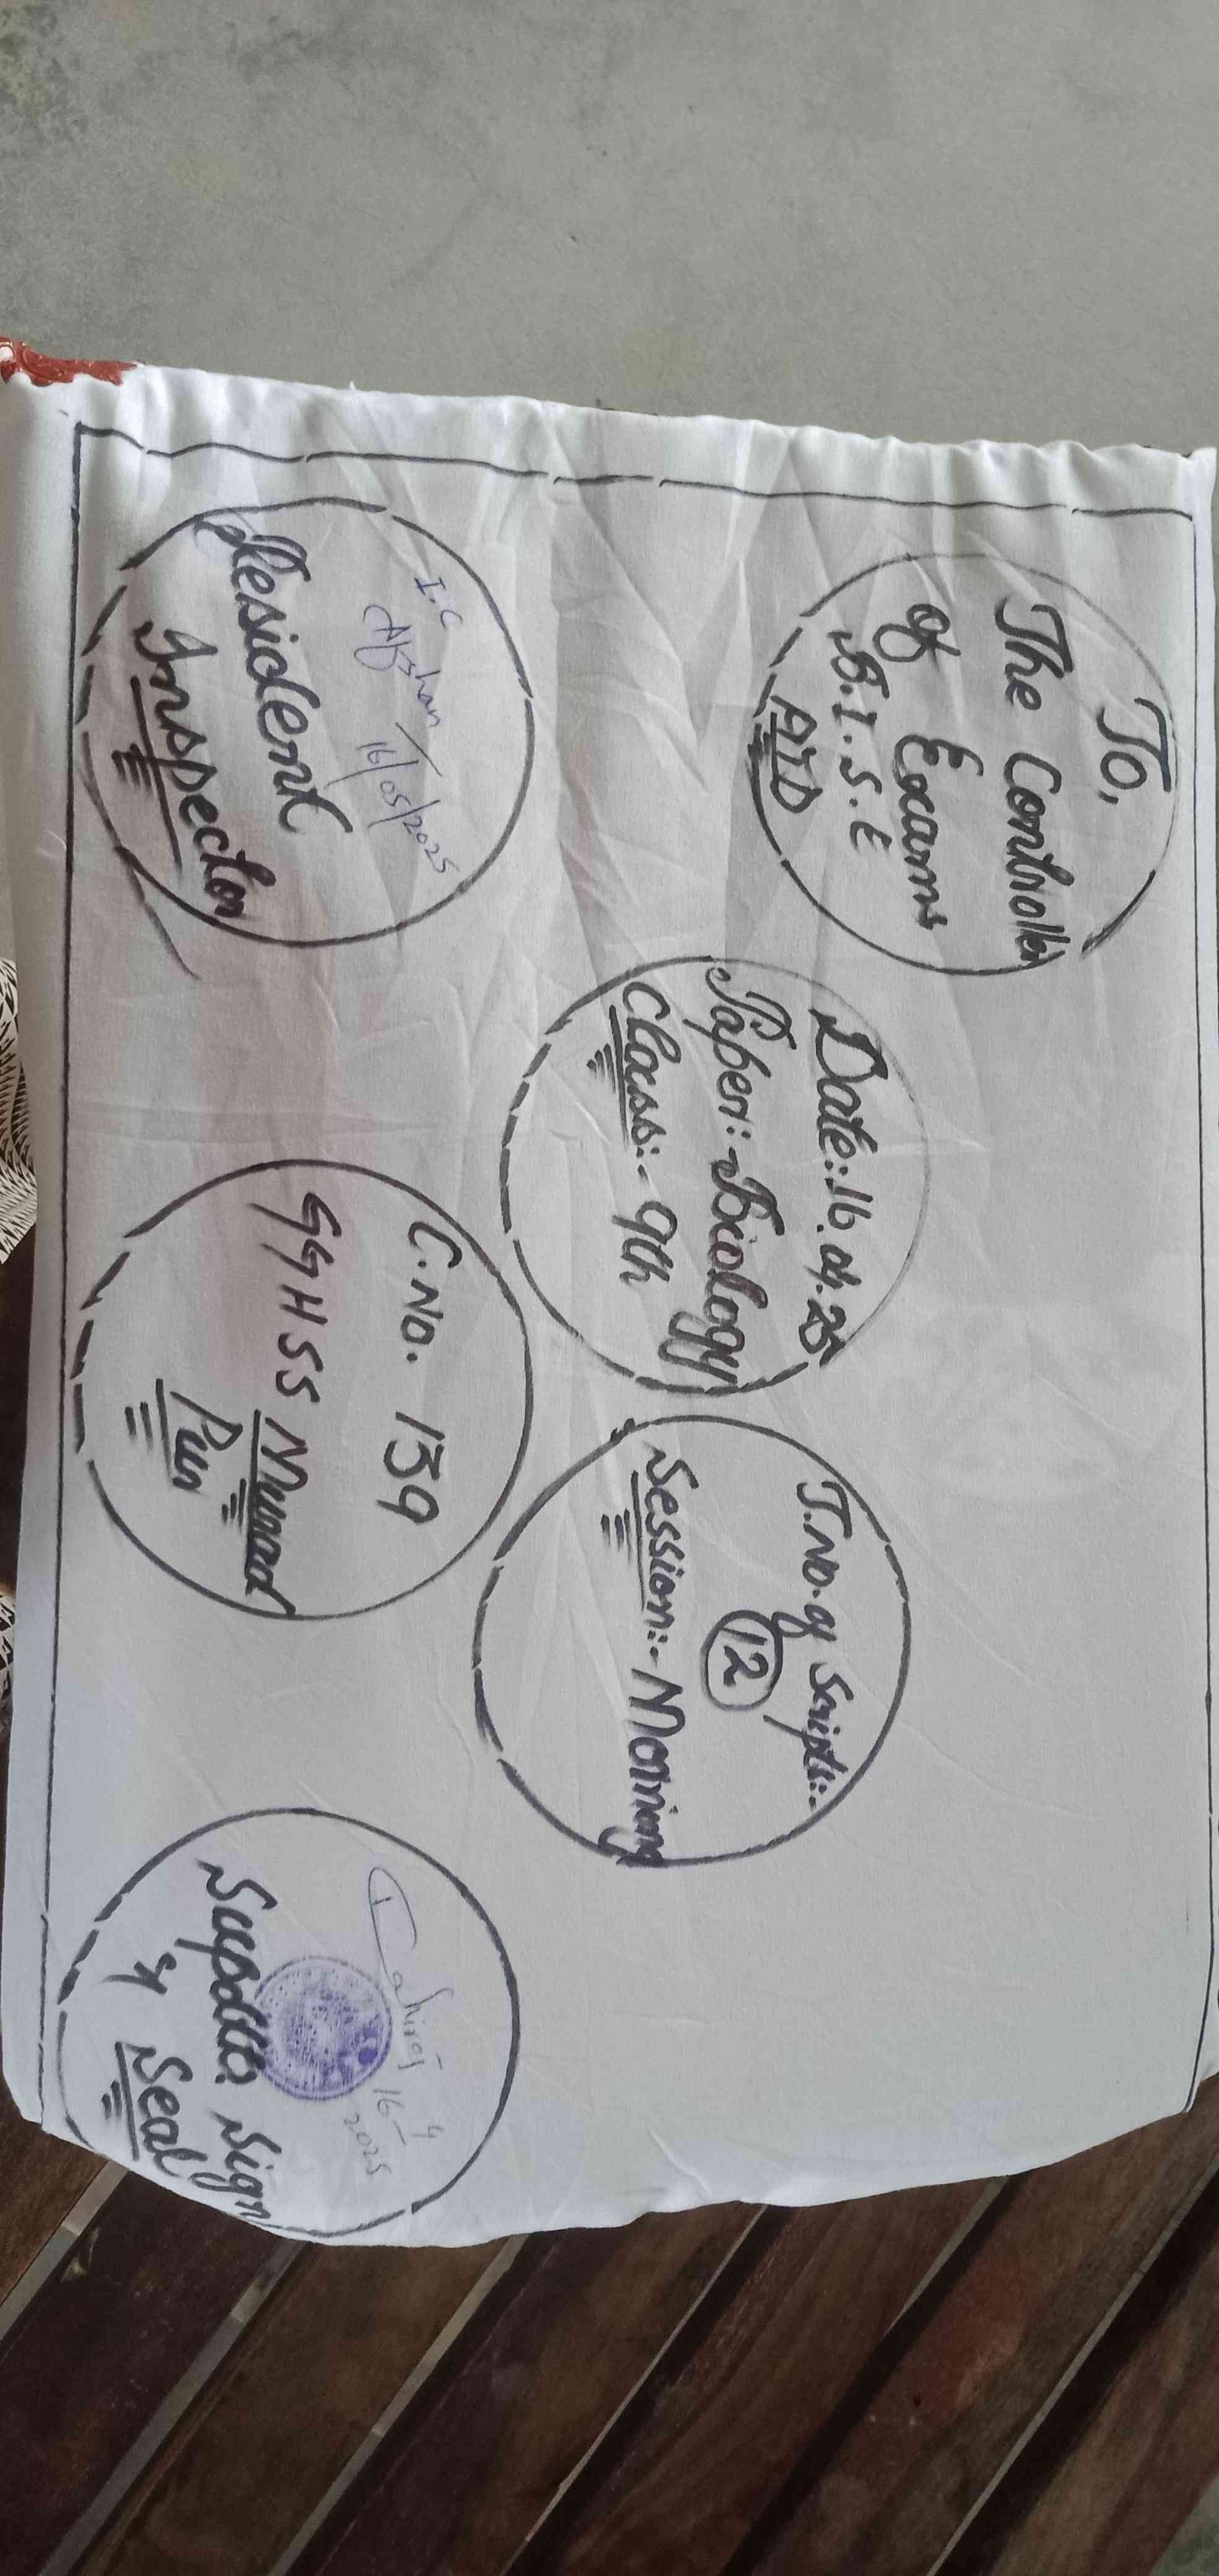 To,
The Controller
of Exams
B.I.S.E
ATD
Date:: 16.04.25
Paper:- Biology
Class:- 9th
T.No. of Scripts:-
12
Session:- Morning
I.C
Afshan
16/05/2025
Resident
Inspector
C.No. 139
GGHSS Murad
Pur
16-4
2025
Supdtt: Sign
& Seal